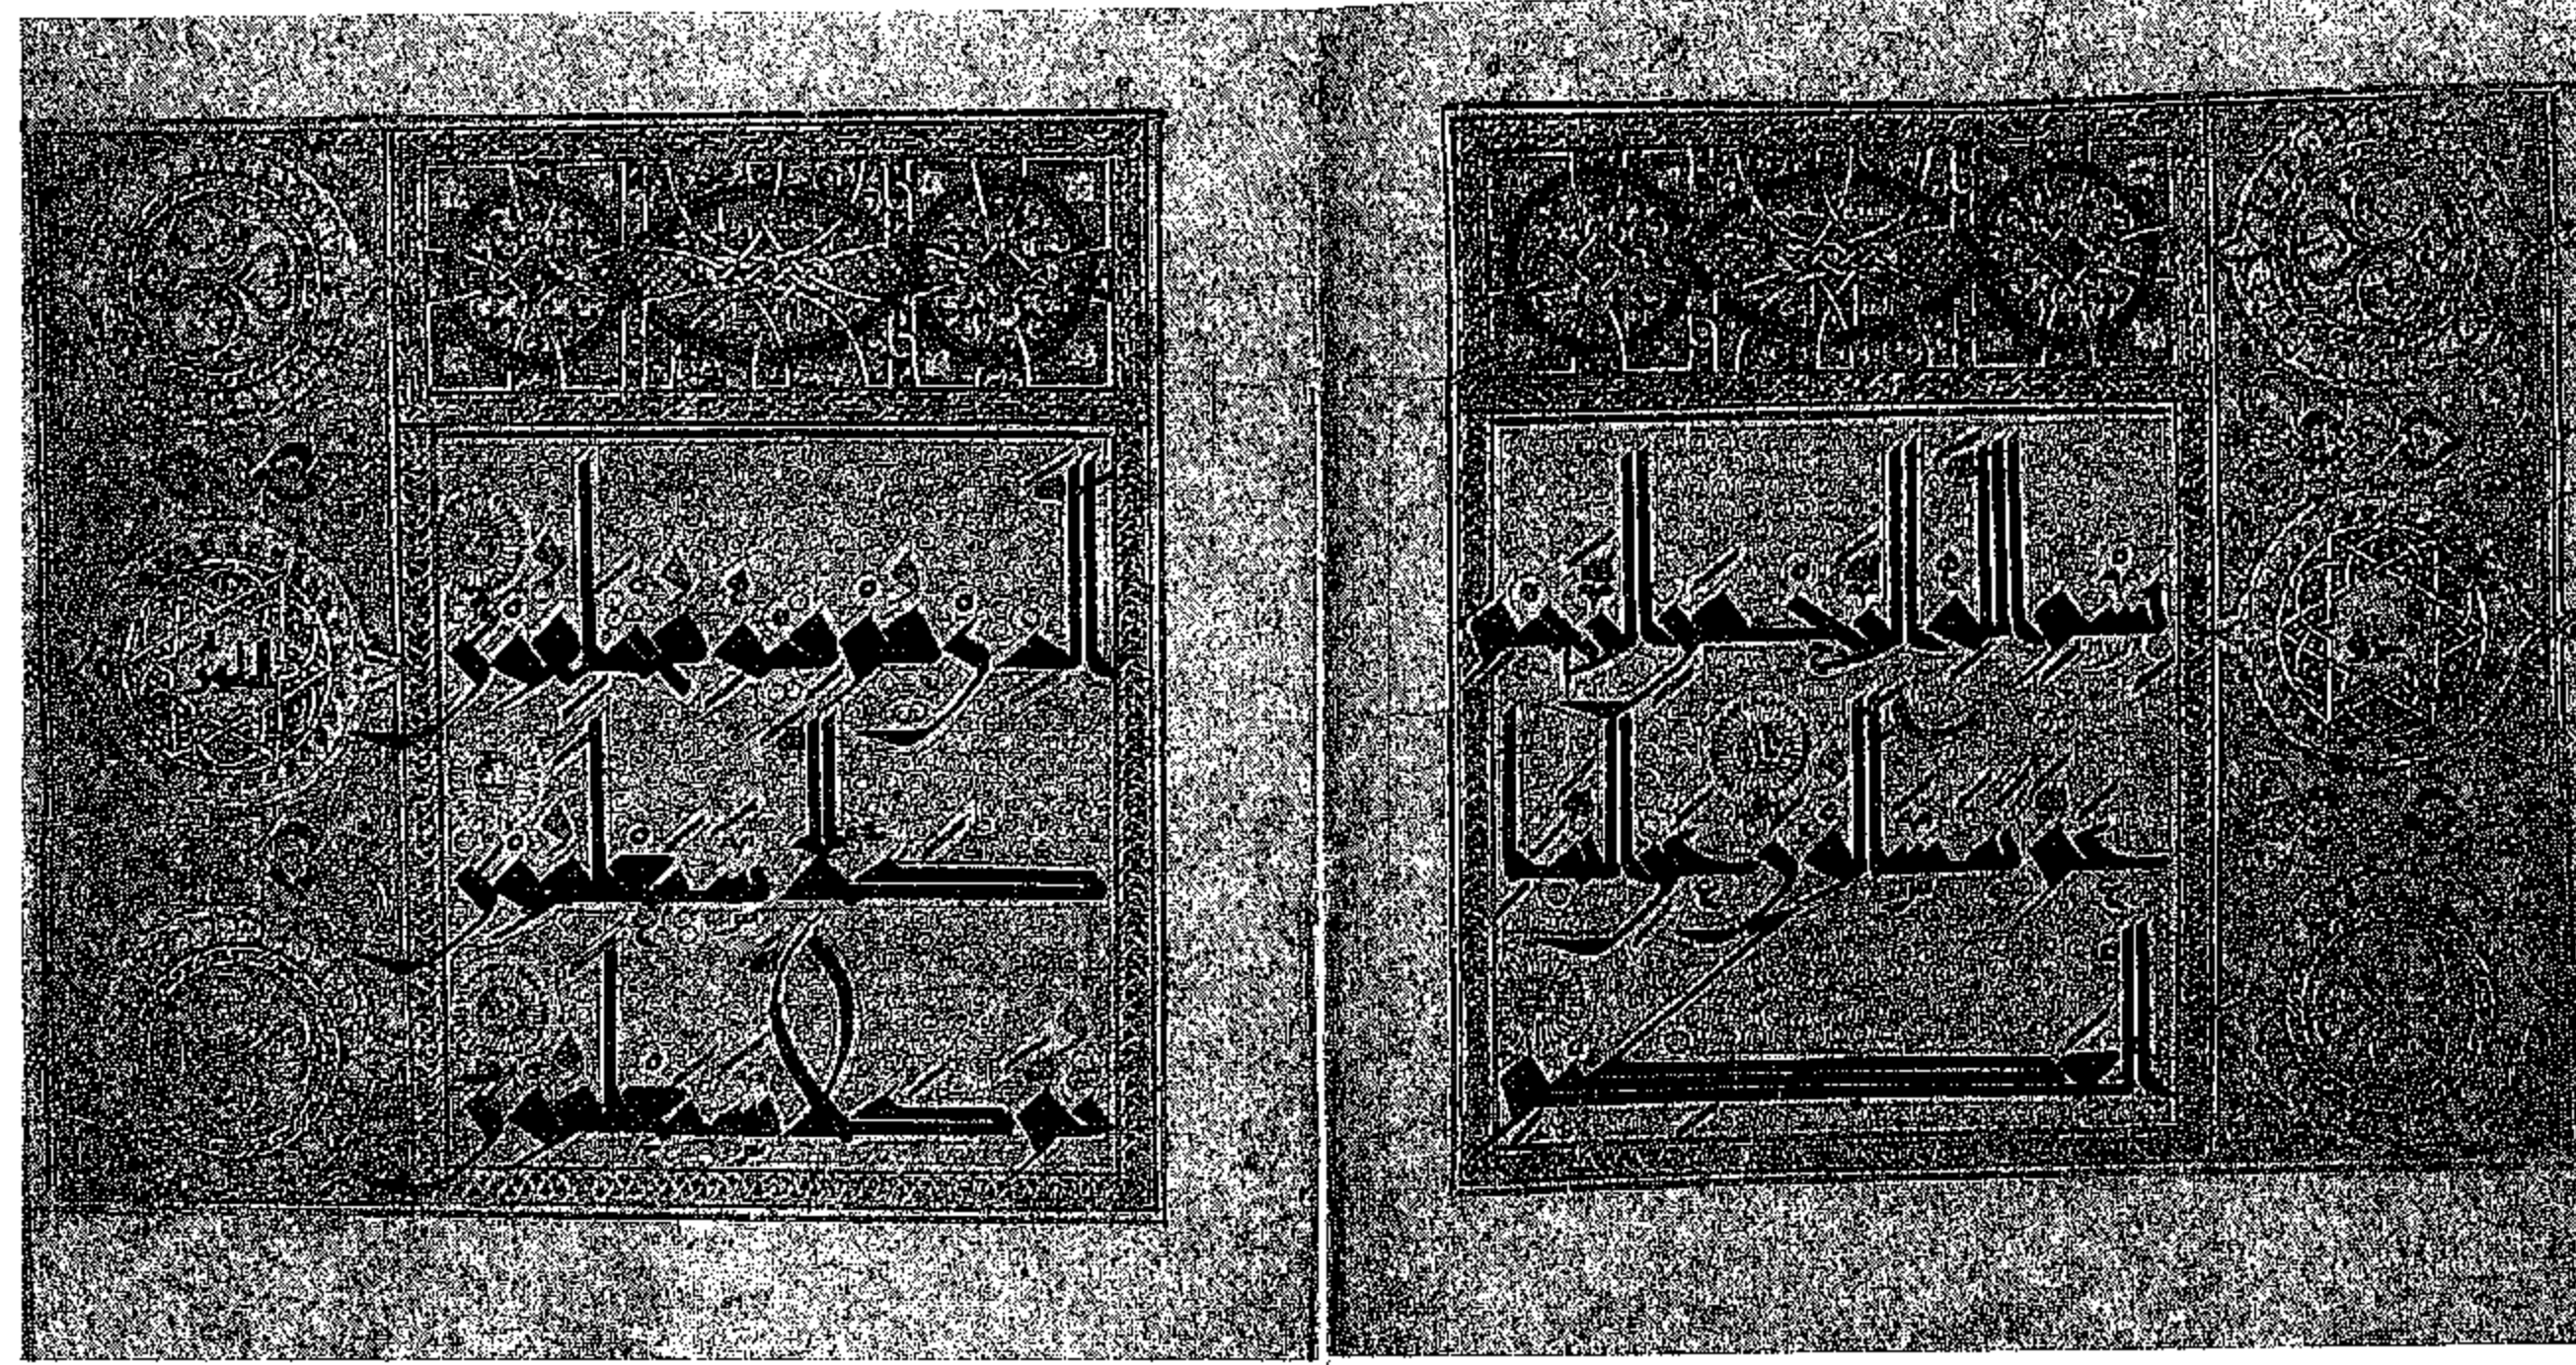 بسم الله الرحمن الرحيم
عم يتساءلون عن النبا
العظيم
الذي هم فيه مختلفون
كلا سيعلمون
ثم كلا سيعلمون